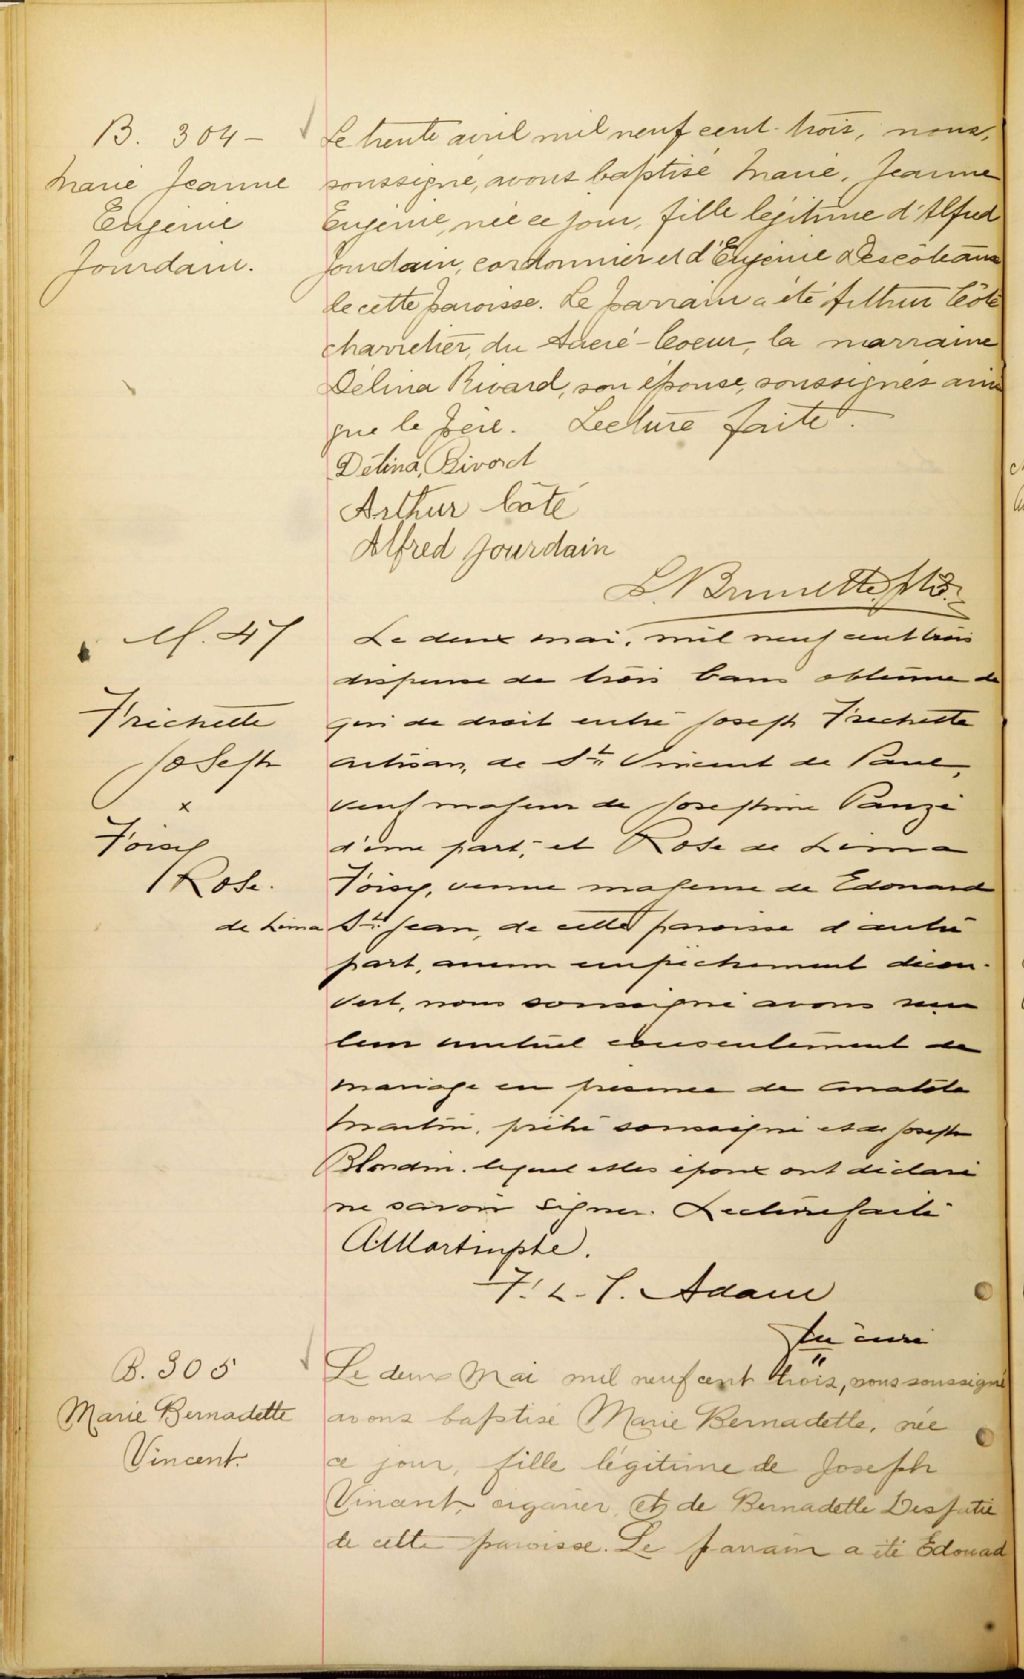 B. 304 –
Marie Jeanne
Eugénie
Jourdain.
Le trente avril mil neuf cent-trois, nous,
soussigné, avons baptisé Marie, Jeanne
Eugénie, née ce jour, fille légitime d'Alfred
Jourdain, cordonnier et d'Eugénie Descôteaux
de cette paroisse. Le parrain a été Arthur Côté
charretier, du Sacré-Coeur, la marraine
Délina Rivard, son épouse, soussignés ainsi
que le père. Lecture faite.
Délina, Rivard
Arthur Côté
Alfred Jourdain
L. Brunette, ptre.
M. 47
Frichette
Joseph
x
Foisy
Rose.
de Lima
Le deux mai, mil neuf cent trois
dispense de trois bans obtenue de
qui de droit entre Joseph Frechette
artisan, de St. Vincent de Paul,
veuf majeur de Josephine Pauzé
d'une part, et Rose de Lima
Foisy, veuve majeure de Edouard
St. Jean, de cette paroisse d'autre
part, aucun empêchement décou-
vert, nous soussigné avons reçu
leur mutuel consentement de
mariage en présence de Anatole
Martin, prêtre soussigné et de Joseph
Blondin. lequel et les époux ont déclaré
ne savoir signer. Lecture faite
A. Martin ptre.
F. L. T. Adam
ptre curé
B. 305
Marie Bernadette
Vincent.
Le deux Mai mil neuf cent trois, nous soussigné
avons baptisé Marie Bernadette, née
ce jour, fille légitime de Joseph
Vincent, cigarier, et de Bernadette Despatie
de cette paroisse. Le parrain a été Edouad